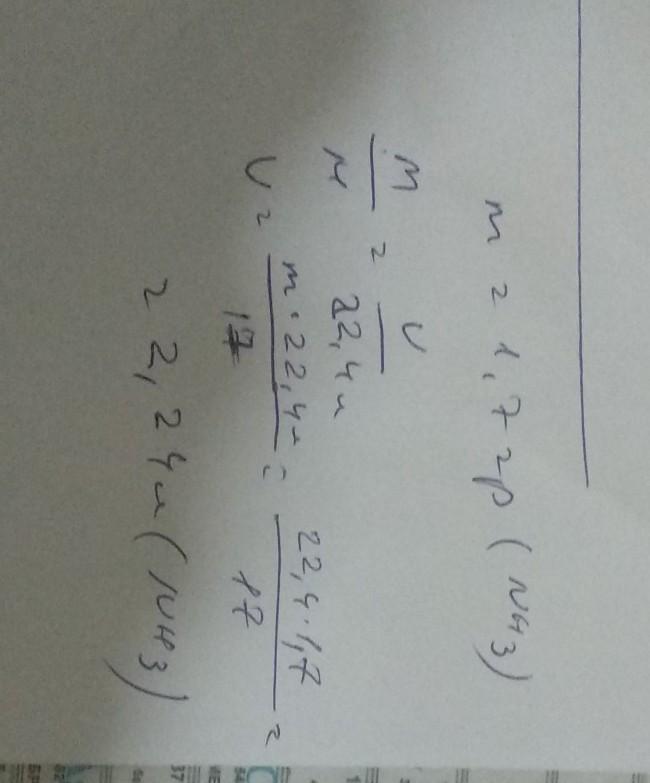 m = 1,7 гр (NH3)
m/M = V/22,4л
V = m·22,4л/17 = 22,4·1,7/17 =
= 2,24л (NH3)